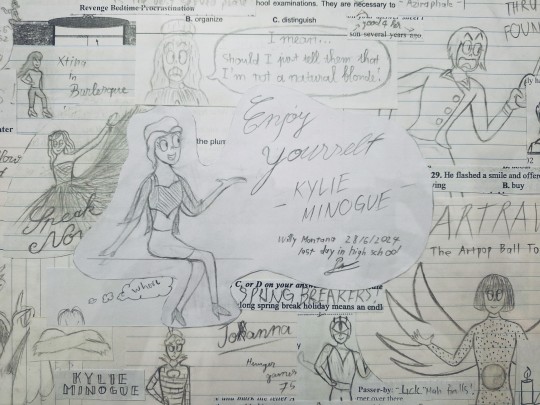 Revenge Bedtime Procrastination
hool examinations. They are necessary to
B. organize
C. distinguish
son several years ago
THRU
FOUN
I mean...
Should I just tell them that
I'm not a natural blonde?
Xtina
in
Burlesque
the plum
Enjoy
Yourself
- KYLIE
MINOGUE -
Willy Montana 28/6/2024
last day in high school
29. He flashed a smile and offere
ving
B. buy
Speak
Now
ARTRAV
The Artpop Ball To
where
C, or D on your answ
SPRING BREAKERS!
long spring break holiday means an endl
Johanna
Hunger
games
75
KYLIE
MINOGUE
Passer-by:
rner over there